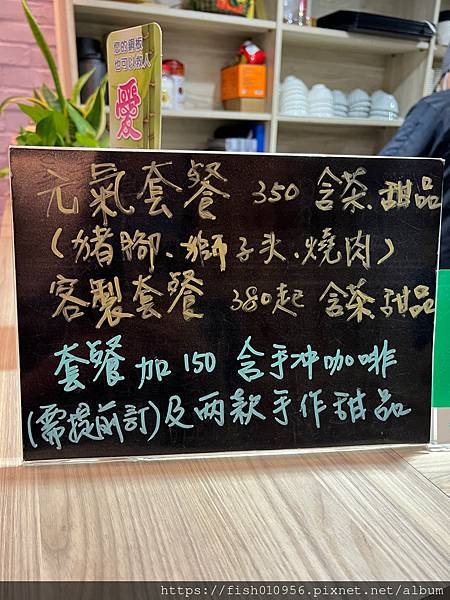 您的銅板
也可以救人
愛
元氣套餐 350 含茶、甜品
(豬腳、獅子头、燒肉)
客製套餐 380起 含茶、甜品
套餐加150 含手冲咖啡
(需提前訂)及两款手作甜品
https://fish010956.pixnet.net/album